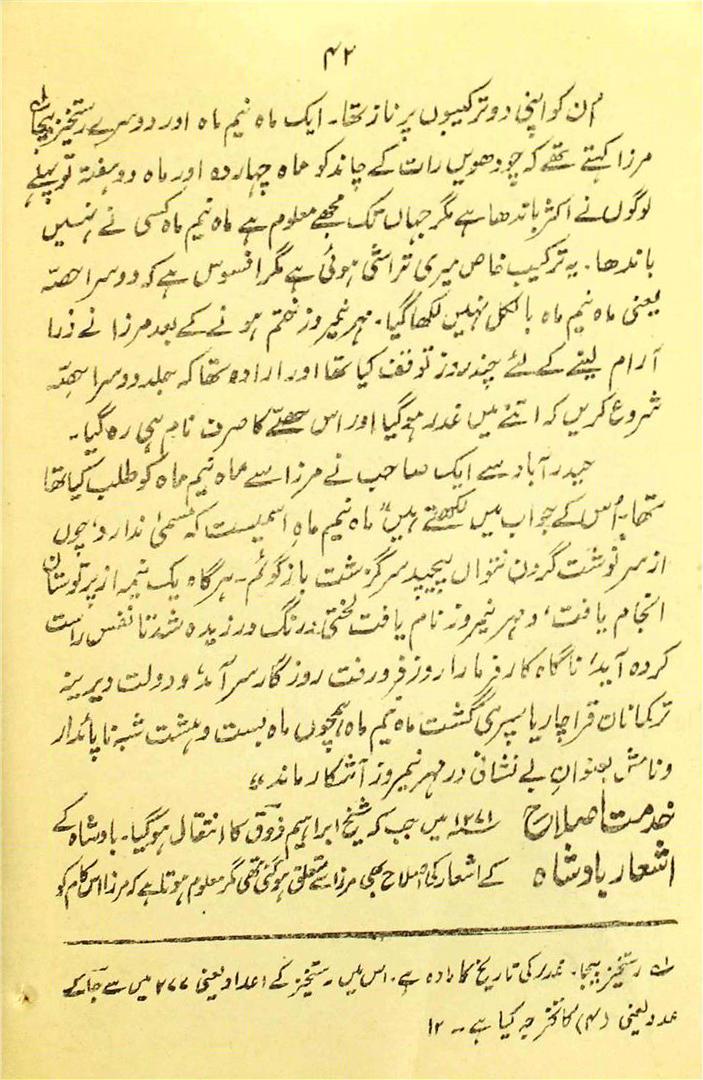 ۴۲
اُن کو اپنی دو ترکیبوں پر ناز تھا۔ ایک ماہ نیم ماہ اور دوسرے رستخیز بیجا
مرزا کہتے تھے کہ چودھویں رات کے چاند کو ماہ چہاردہ اور ماہ دو ہفتہ تو پہلے
لوگوں نے اکثر باندھا ہے مگر جہاں تک مجھے معلوم ہے ماہ نیم ماہ کسی نے نہیں
باندھا۔ یہ ترکیب خاص میری تراشی ہوئی ہے مگر افسوس ہے کہ دوسرا حصّہ
یعنی ماہ نیم ماہ بالکل نہیں لکھا گیا۔ مہر نیمروز ختم ہونے کے بعد مرزا نے ذرا
آرام لینے کے لئے چند روز توقف کیا تھا اور ارادہ تھا کہ جلد دوسرا حصّہ
شروع کریں کہ اتنے میں غدر ہوگیا اور اس حصّے کا صرف نام ہی رہ گیا۔
حیدرآباد سے ایک صاحب نے مرزا سے ماہ نیم ماہ کو طلب کیا تھا
تھا۔ اُس کے جواب میں لکھتے ہیں "ماہ نیم ماہ اسمیست کہ مسمیٰ ندارد، چوں
از سر نوشت گردن نتواں پیچید سرگزشت باز گوئم۔ ہرگاہ یک نیمہ از پرتوستان
انجام یافت، و مہر نیمروز نام یافت لختی درنگ ورزیدہ شد تا نفس راست
کردہ آید، ناگاہ کارفرما را روز فرو رفت روزگار سرآمد، و دولت دیرینہ
ترکانان قراچار یا سپری گشت ماہ نیم ماہ ہمچوں ماہ بست و ہشت شبہ ناپائدار
و نامش بعنوان بے نشانی در مہر نیمروز آشکار ماند"
خدمت اصلاح ۱۲۷۱ میں جب کہ شیخ ابراہیم ذوق کا انتقال ہوگیا۔ بادشاہ کے
اشعار بادشاہ کے اشعار کی اصلاح بھی مرزا سے متعلق ہوگئی تھی مگر معلوم ہوتا ہے کہ مرزا اس کام کو
لہ رستخیز بیجا۔ غدر کی تاریخ کا مادہ ہے۔ اس میں۔ رستخیز کے اعداد یعنی ۲۷۷ میں سے جا کے
عدد یعنی (۴) کا تخرجہ کیا ہے۔۔ ۱۲